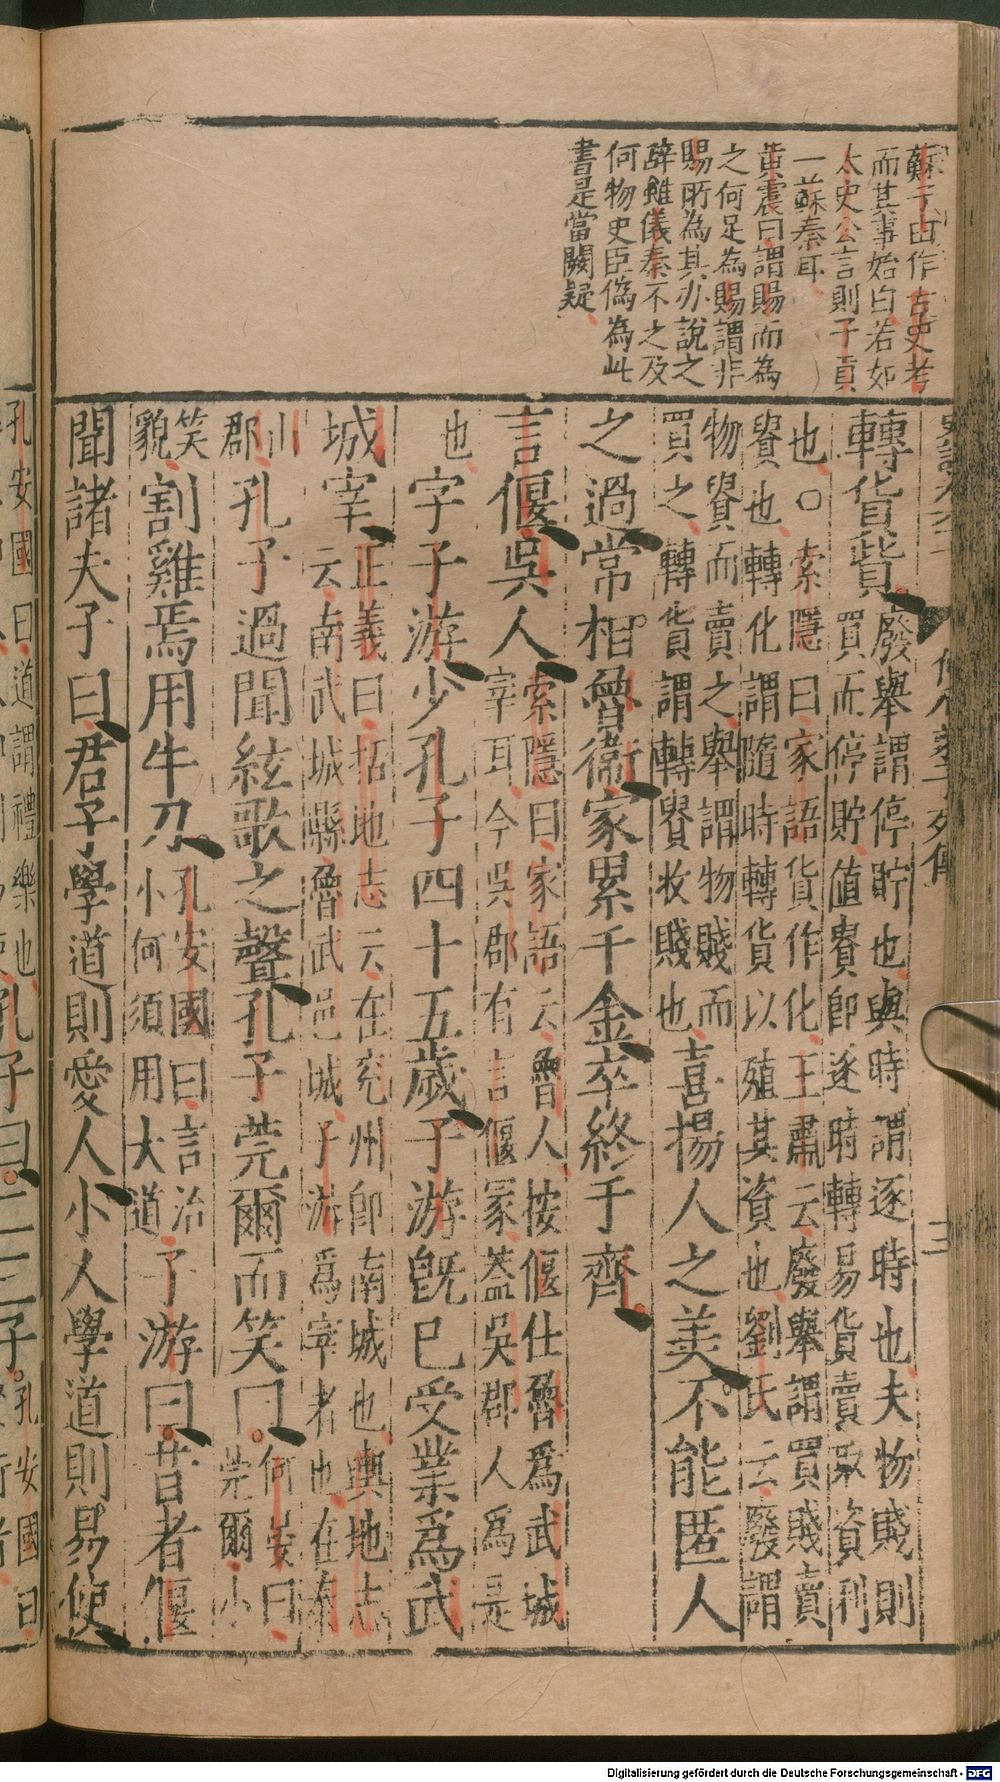 蘇子由作古史考
而其事始白若如
太史公言則子貢
一蘇秦耳
黃震曰謂賜而為
之何足為賜謂非
賜所為其亦說之
辭雖儀秦不之及
何物史臣偽為此
書是當闕疑
轉貨貲廢舉謂停貯也與時謂逐時也夫物賤則
買而停貯值貴即逐時轉易貨賣取資利
也○索隱曰家語貨作化王肅云廢舉謂買賤賣
貴也轉化謂隨時轉貨以殖其資也劉氏云廢謂
物貴而賣之舉謂物賤而
買之轉貨謂轉貴收賤也喜揚人之美不能匿人
之過常相魯衛家累千金卒終于齊
言偃吳人索隱曰家語云魯人按偃仕魯爲武城
宰耳今吳郡有言偃冢蓋吳郡人爲是
也字子游少孔子四十五歲子游旣已受業爲武
城宰正義曰括地志云在兖州卽南城也輿地志
云南武城縣魯武邑城子游爲宰者也在泰
山
郡孔子過聞絃歌之聲孔子莞爾而笑曰何晏曰
莞爾小
笑
貌割雞焉用牛刀孔安國曰言治
小何須用大道子游曰昔者偃
聞諸夫子曰君子學道則愛人小人學道則易使
孔安國曰道謂禮樂也孔子曰二三子孔安國曰
Digitalisierung gefördert durch die Deutsche Forschungsgemeinschaft - DFG